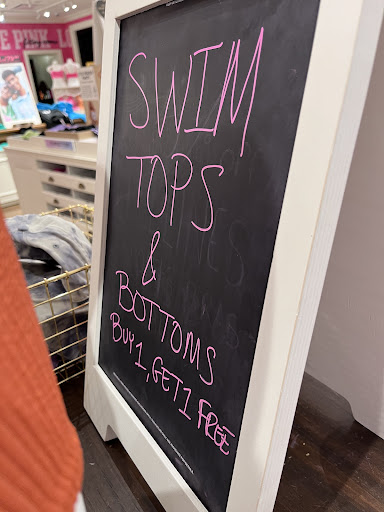 PINK
SWIM
TOPS
&
BOTTOMS
BUY 1, GET 1 FREE